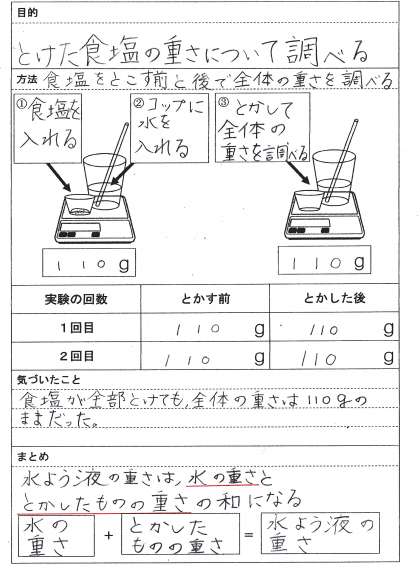 目的
とけた食塩の重さについて調べる
方法 食塩をとこす前と後で全体の重さを調べる
①食塩を
入れる
②コップに
水を
入れる
③とかして
全体の
重さを調べる
110g
110g
実験の回数 とかす前 とかした後
1回目 110 g 110 g
2回目 110 g 110 g
気づいたこと
食塩が全部とけても、全体の重さは110gの
ままだった。
まとめ
水よう液の重さは、水の重さと
とかしたものの重さの和になる
水の
重さ
+
とかした
ものの重さ
=
水よう液の
重さ